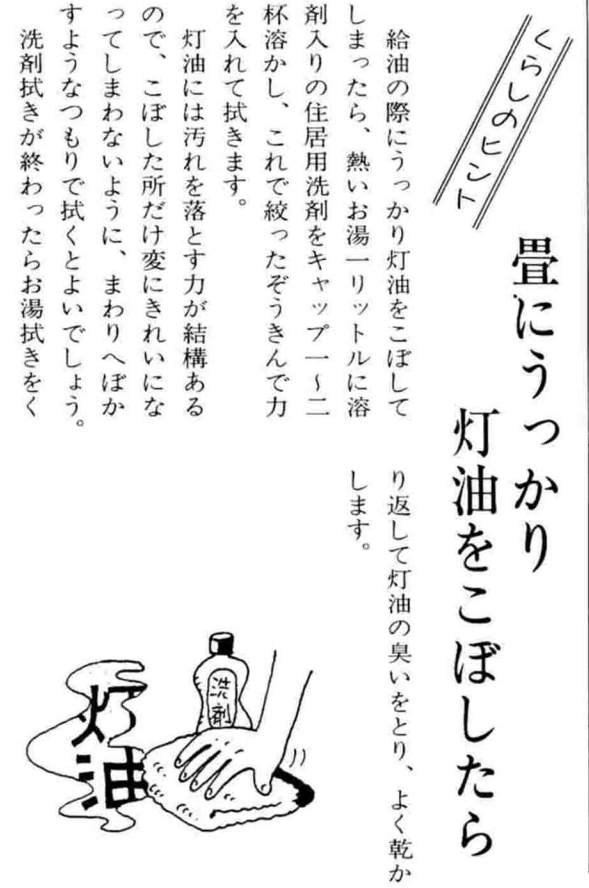 くらしのヒント
畳にうっかり
灯油をこぼしたら
給油の際にうっかり灯油をこぼして
しまったら、熱いお湯一リットルに溶
剤入りの住居用洗剤をキャップ一〜二
杯溶かし、これで絞ったぞうきんで力
を入れて拭きます。
灯油には汚れを落とす力が結構ある
ので、こぼした所だけ変にきれいにな
ってしまわないように、まわりへぼか
すようなつもりで拭くとよいでしょう。
洗剤拭きが終わったらお湯拭きをく
り返して灯油の臭いをとり、よく乾か
します。
洗剤
灯油